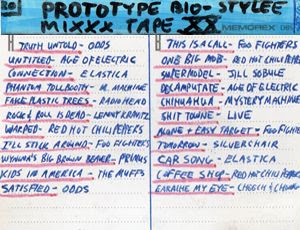 PROTOTYPE BIO-STYLEE
MIXXX TAPE XX MEMOREX DBS
TRUTH UNTOLD - ODDS
UNTITLED - AGE OF ELECTRIC
CONNECTION - ELASTICA
PHANTOM TOLLBOOTH - M. MACHINE
FAKE PLASTIC TREES - RADIOHEAD
ROCK & ROLL IS DEAD - LENNY KRAVITZ
WARPED - RED HOT CHILI PEPPERS
I'LL STICK AROUND - FOO FIGHTERS
WYNONA'S BIG BROWN BEAVER - PRIMUS
KIDS IN AMERICA - THE MUFFS
SATISFIED - ODDS
THIS IS A CALL - FOO FIGHTERS
ONE BIG MOB - RED HOT CHILI PEPPERS
SUPERMODEL - JILL SOBULE
DECAPUTATE - AGE OF ELECTRIC
CHIHUAHUA - MYSTERY MACHINE
SHIT TOWNE - LIVE
ALONE + EASY TARGET - FOO FIGHTERS
TOMORROW - SILVERCHAIR
CAR SONG - ELASTICA
COFFEE SHOP - RED HOT CHILI PEPPERS
EARACHE MY EYE - CHEECH & CHONG